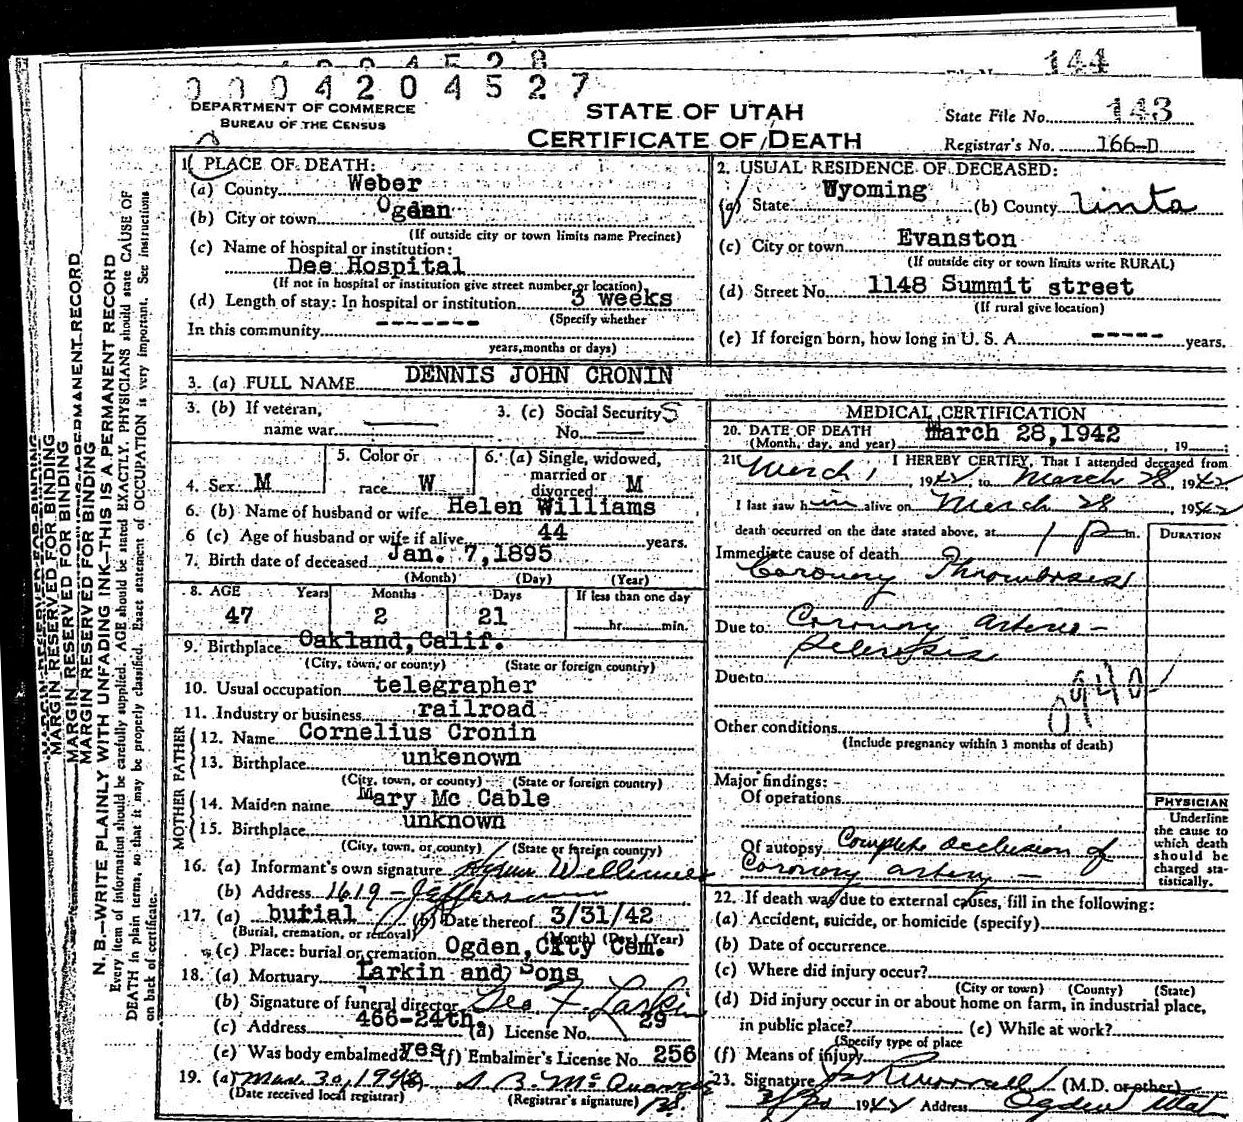 0004204528
144
0004204527
DEPARTMENT OF COMMERCE
BUREAU OF THE CENSUS
STATE OF UTAH
CERTIFICATE OF DEATH
State File No. 143
Registrar's No. 166-D
1. PLACE OF DEATH:
(a) County Weber
(b) City or town Ogden
(If outside city or town limits name Precinct)
(c) Name of hospital or institution:
Dee Hospital
(If not in hospital or institution give street number or location)
(d) Length of stay: In hospital or institution 3 weeks
(Specify whether
In this community -------
years, months or days)
2. USUAL RESIDENCE OF DECEASED:
(a) State Wyoming (b) County Uinta
(c) City or town Evanston
(If outside city or town limits write RURAL)
(d) Street No. 1148 Summit street
(If rural give location)
(e) If foreign born, how long in U. S. A. ----- years.
3. (a) FULL NAME DENNIS JOHN CRONIN
3. (b) If veteran, name war.
3. (c) Social Security No.
4. Sex M
5. Color or race W
6. (a) Single, widowed, married or divorced M
6. (b) Name of husband or wife Helen Williams
6 (c) Age of husband or wife if alive 44 years.
7. Birth date of deceased Jan. 7, 1895
(Month) (Day) (Year)
8. AGE Years Months Days If less than one day
47 2 21 hr. min.
9. Birthplace Oakland, Calif.
(City, town, or county) (State or foreign country)
10. Usual occupation telegrapher
11. Industry or business railroad
FATHER
12. Name Cornelius Cronin
13. Birthplace unkenown
(City, town, or county) (State or foreign country)
MOTHER
14. Maiden name Mary Mc Cable
15. Birthplace unknown
(City, town, or county) (State or foreign country)
16. (a) Informant's own signature
(b) Address 1619 - Jefferson
17. (a) burial (b) Date thereof 3/31/42
(Burial, cremation, or removal) (Month) (Day) (Year)
(c) Place: burial or cremation Ogden, City Cem.
18. (a) Mortuary Larkin and Sons
(b) Signature of funeral director Geo F. Larkin
(c) Address 466-24th. (d) License No. 29
(e) Was body embalmed? yes (f) Embalmer's License No. 256
19. (a) Mar. 30, 1942 (b)
(Date received local registrar) (Registrar's signature)
MEDICAL CERTIFICATION
20. DATE OF DEATH March 28, 1942
(Month, day, and year) , 19
21. I HEREBY CERTIFY, That I attended deceased from
March 1, 1942, to March 28, 1942
I last saw him alive on March 28, 1942
death occurred on the date stated above, at 1 P m.
DURATION
Immediate cause of death
Coronary Thrombosis
Due to Coronary arterio-
sclerosis
Due to
0940
Other conditions
(Include pregnancy within 3 months of death)
Major findings:
Of operations
Of autopsy Complete occlusion of
Coronary artery -
PHYSICIAN
Underline
the cause to
which death
should be
charged sta-
tistically.
22. If death was due to external causes, fill in the following:
(a) Accident, suicide, or homicide (specify)
(b) Date of occurrence
(c) Where did injury occur?
(City or town) (County) (State)
(d) Did injury occur in or about home on farm, in industrial place,
in public place? (e) While at work?
(Specify type of place
(f) Means of injury
23. Signature (M.D. or other)
3/30 1942 Address Ogden Utah
MARGIN RESERVED FOR BINDING
MARGIN RESERVED FOR BINDING
MARGIN RESERVED FOR BINDING
N. B.—WRITE PLAINLY WITH UNFADING INK—THIS IS A PERMANENT RECORD
Every item of information should be carefully supplied. AGE should be stated EXACTLY. PHYSICIANS should state CAUSE OF
DEATH in plain terms, so that it may be properly classified. Exact statement of OCCUPATION is very important. See instructions
on back of certificate.